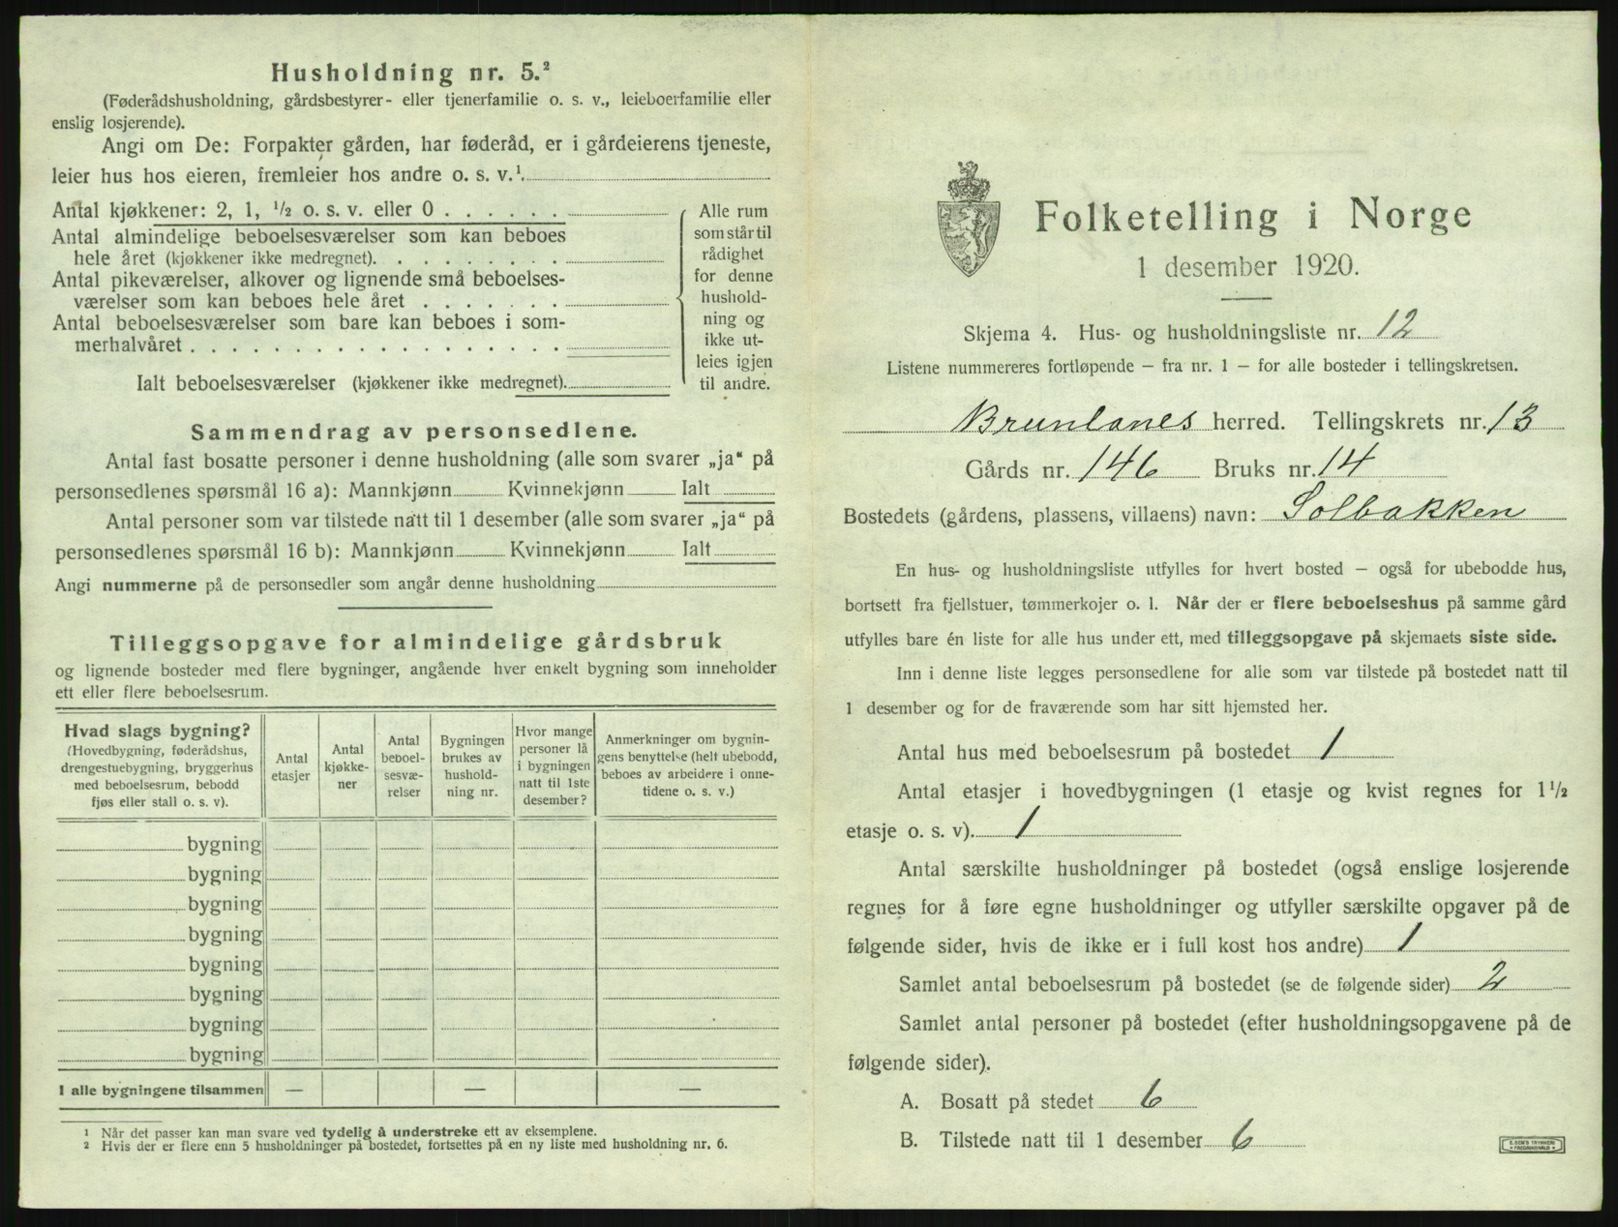 Husholdning nr. 5.²
(Føderådshusholdning, gårdsbestyrer- eller tjenerfamilie o. s. v., leieboerfamilie eller
enslig losjerende).
Angi om De: Forpakter gården, har føderåd, er i gårdeierens tjeneste,
leier hus hos eieren, fremleier hos andre o. s. v.¹.
Antal kjøkkener: 2, 1, ½ o. s. v. eller 0 . . . . . .
Antal almindelige beboelsesværelser som kan beboes
hele året (kjøkkener ikke medregnet). . . . . . . . .
Antal pikeværelser, alkover og lignende små beboelses-
værelser som kan beboes hele året . . . . . . .
Antal beboelsesværelser som bare kan beboes i som-
merhalvåret . . . . . . . . . . . . . . . . . .
Ialt beboelsesværelser (kjøkkener ikke medregnet).
Alle rum
som står til
rådighet
for denne
hushold-
ning og
ikke ut-
leies igjen
til andre.
Sammendrag av personsedlene.
Antal fast bosatte personer i denne husholdning (alle som svarer „ja“ på
personsedlenes spørsmål 16 a): Mannkjønn Kvinnekjønn Ialt
Antal personer som var tilstede natt til 1 desember (alle som svarer „ja“ på
personsedlenes spørsmål 16 b): Mannkjønn Kvinnekjønn Ialt
Angi nummerne på de personsedler som angår denne husholdning
Tilleggsopgave for almindelige gårdsbruk
og lignende bosteder med flere bygninger, angående hver enkelt bygning som inneholder
ett eller flere beboelsesrum.
Hvad slags bygning?
(Hovedbygning, føderådshus,
drengestuebygning, bryggerhus
med beboelsesrum, bebodd
fjøs eller stall o. s. v).
Antal
etasjer
Antal
kjøkke-
ner
Antal
beboel-
sesvæ-
relser
Bygningen
brukes av
hushold-
ning nr.
Hvor mange
personer lå
i bygningen
natt til 1ste
desember?
Anmerkninger om bygnin-
gens benyttelse (helt ubebodd,
beboes av arbeidere i onne-
tidene o. s. v.)
bygning
bygning
bygning
bygning
bygning
bygning
bygning
bygning
I alle bygningene tilsammen — — —
¹ Når det passer kan man svare ved tydelig å understreke ett av eksemplene.
² Hvis der er flere enn 5 husholdninger på bostedet, fortsettes på en ny liste med husholdning nr. 6.
Folketelling i Norge
1 desember 1920.
Skjema 4. Hus- og husholdningsliste nr. 12
Listene nummereres fortløpende — fra nr. 1 — for alle bosteder i tellingskretsen.
Brunlanes herred. Tellingskrets nr. 13
Gårds nr. 146 Bruks nr. 14
Bostedets (gårdens, plassens, villaens) navn: Solbakken
En hus- og husholdningsliste utfylles for hvert bosted — også for ubebodde hus,
bortsett fra fjellstuer, tømmerkojer o. l. Når der er flere beboelseshus på samme gård
utfylles bare én liste for alle hus under ett, med tilleggsopgave på skjemaets siste side.
Inn i denne liste legges personsedlene for alle som var tilstede på bostedet natt til
1 desember og for de fraværende som har sitt hjemsted her.
Antal hus med beboelsesrum på bostedet 1
Antal etasjer i hovedbygningen (1 etasje og kvist regnes for 1½
etasje o. s. v). 1
Antal særskilte husholdninger på bostedet (også enslige losjerende
regnes for å føre egne husholdninger og utfyller særskilte opgaver på de
følgende sider, hvis de ikke er i full kost hos andre) 1
Samlet antal beboelsesrum på bostedet (se de følgende sider) 2
Samlet antal personer på bostedet (efter husholdningsopgavene på de
følgende sider).
A. Bosatt på stedet 6
B. Tilstede natt til 1 desember 6